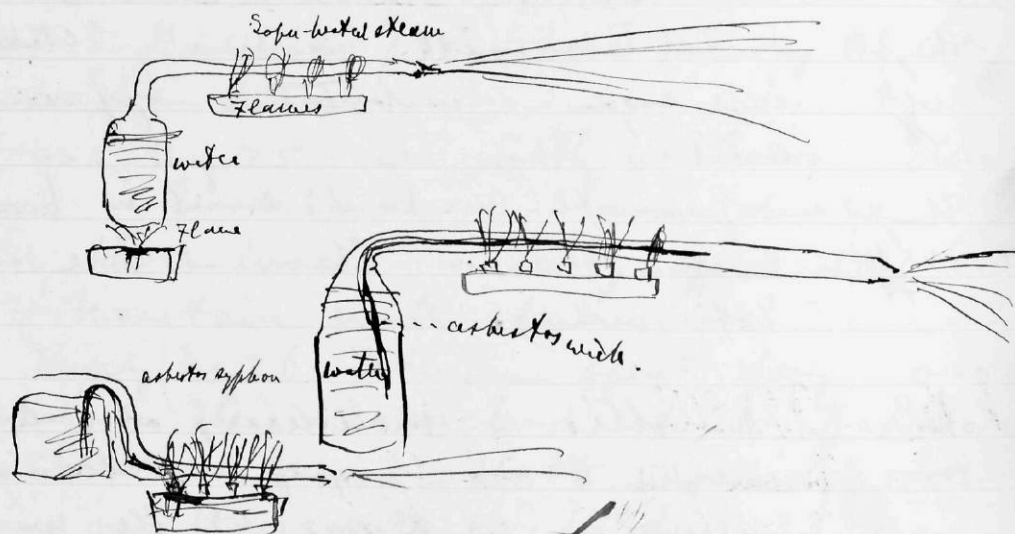 Super-heated steam
Flames
water
Flame
asbestos wick.
water
asbestos syphon